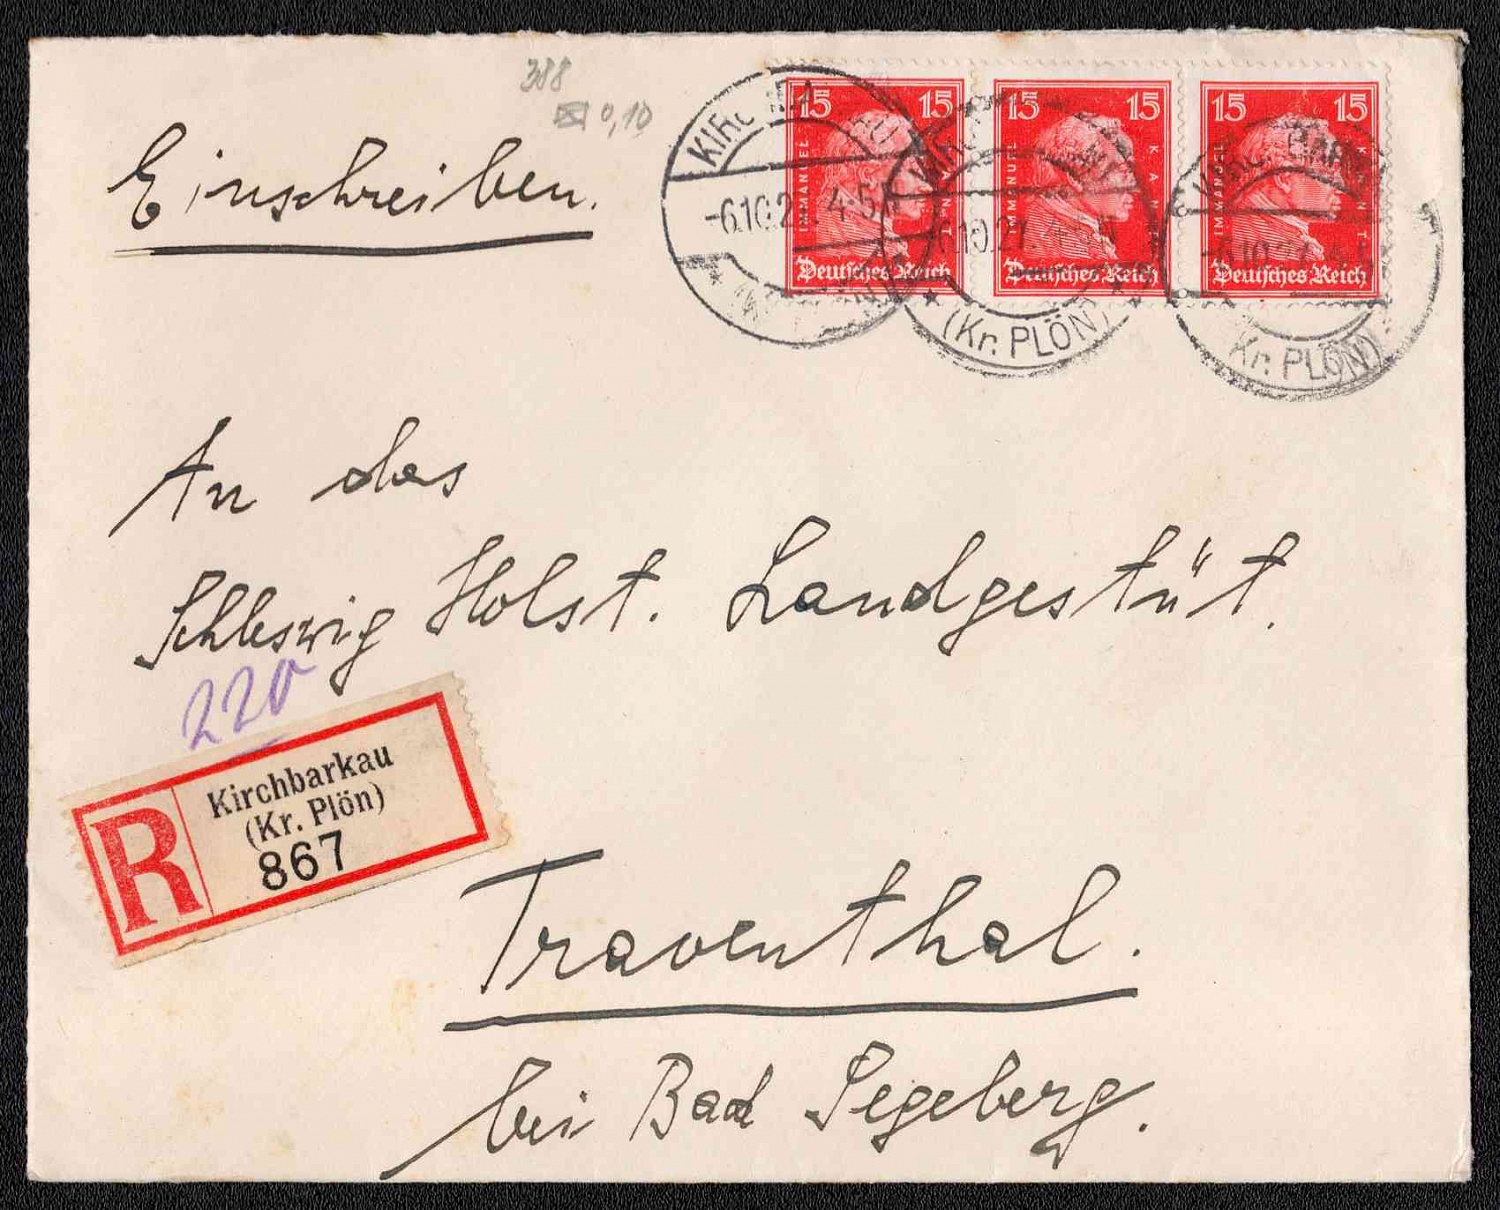 388
0,10
Einschreiben.
15 15 15 15 15 15
IMMANUEL KANT IMMANUEL KANT IMMANUEL KANT
Deutsches Reich Deutsches Reich Deutsches Reich
-6.10.27. 4-5N
(Kr. PLÖN) (Kr. PLÖN)
An das
Schleswig Holst. Landgestüt.
220
R
Kirchbarkau
(Kr. Plön)
867
Traventhal.
bei Bad Segeberg.